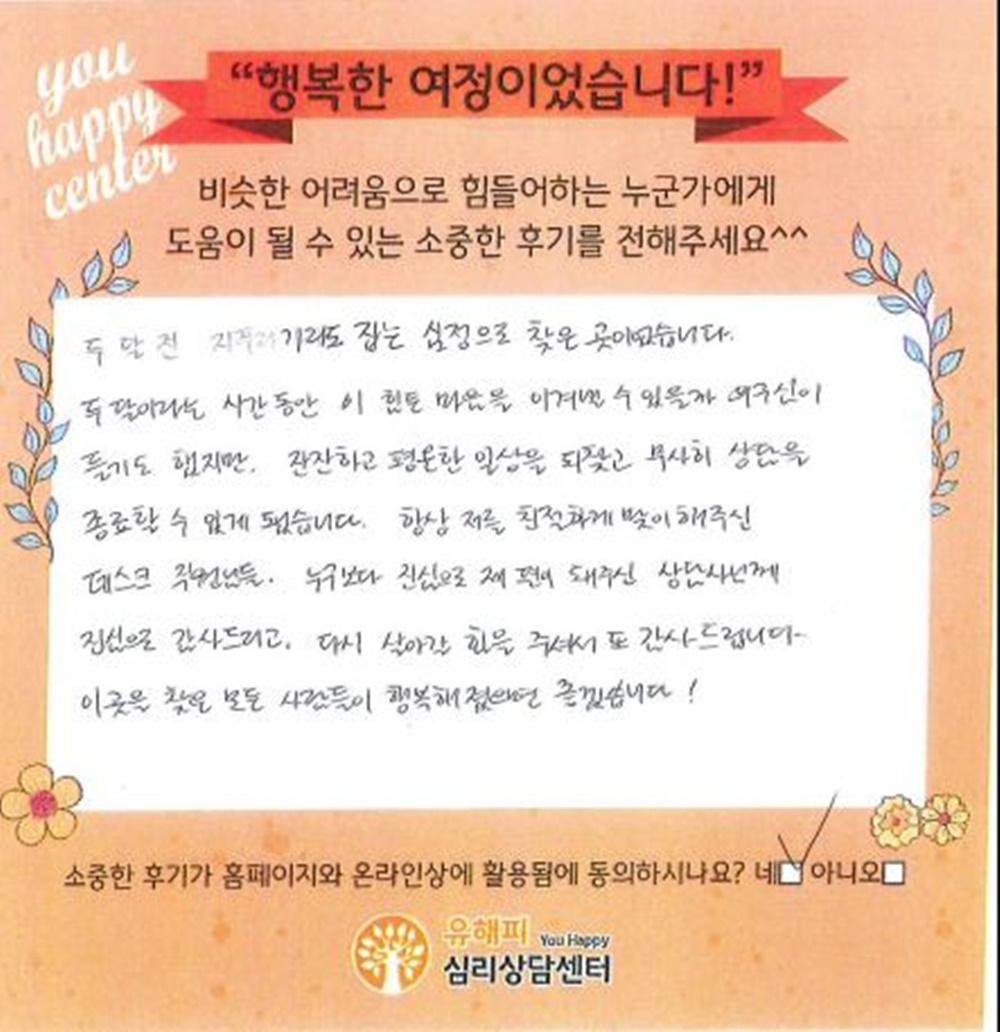 you
happy
center
“행복한 여정이었습니다!”
비슷한 어려움으로 힘들어하는 누군가에게
도움이 될 수 있는 소중한 후기를 전해주세요^^
두 달 전 지푸라기라도 잡는 심정으로 찾은 곳이었습니다.
두 달이라는 시간동안 이 힘든 마음을 이겨낼 수 있을까 의구심이
들기도 했지만, 잔잔하고 평온한 일상을 되찾고 무사히 상담을
종료할 수 있게 됐습니다. 항상 저를 친절하게 맞이해주신
데스크 직원분들, 누구보다 진심으로 제 편이 돼주신 상담사님께
진심으로 감사드리고, 다시 살아갈 힘을 주셔서 또 감사드립니다.
이곳을 찾은 모든 사람들이 행복해졌으면 좋겠습니다!
소중한 후기가 홈페이지와 온라인상에 활용됨에 동의하시나요? 네☑ 아니오□
유해피 You Happy
심리상담센터